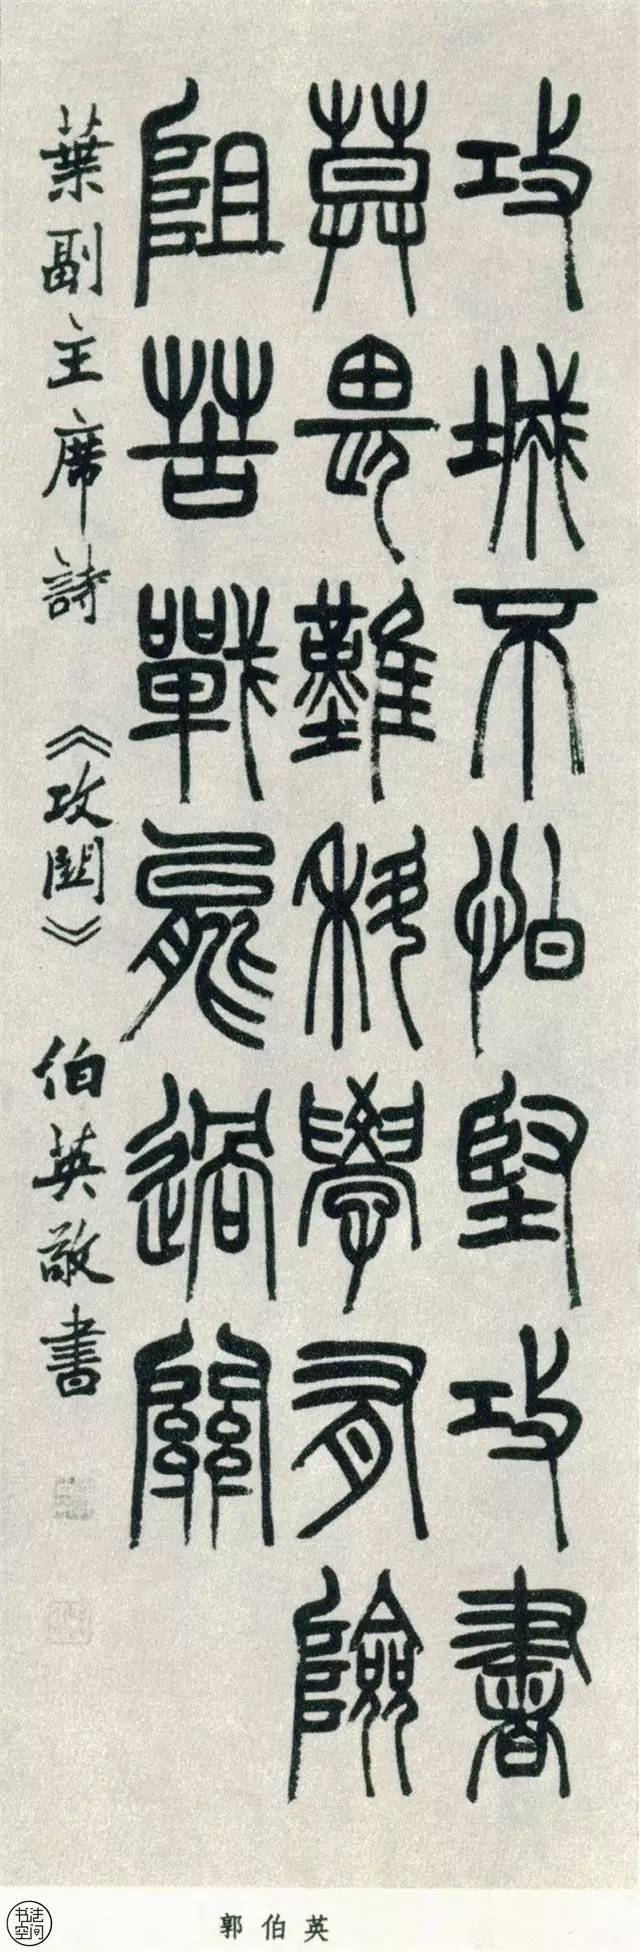 攻城不怕堅攻書
莫畏難科學有險
阻苦戰能過關
葉副主席詩 《攻関》 伯英敬書
郭伯英
书法空间